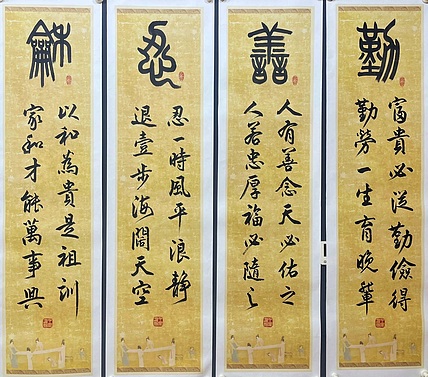 勤
富貴必從勤儉得
勤勞一生育晚輩
譱
人有善念天必佑之
人若忠厚福必隨之
忍
忍一時風平浪静
退壹步海闊天空
龢
以和為貴是祖訓
家和才能萬事興